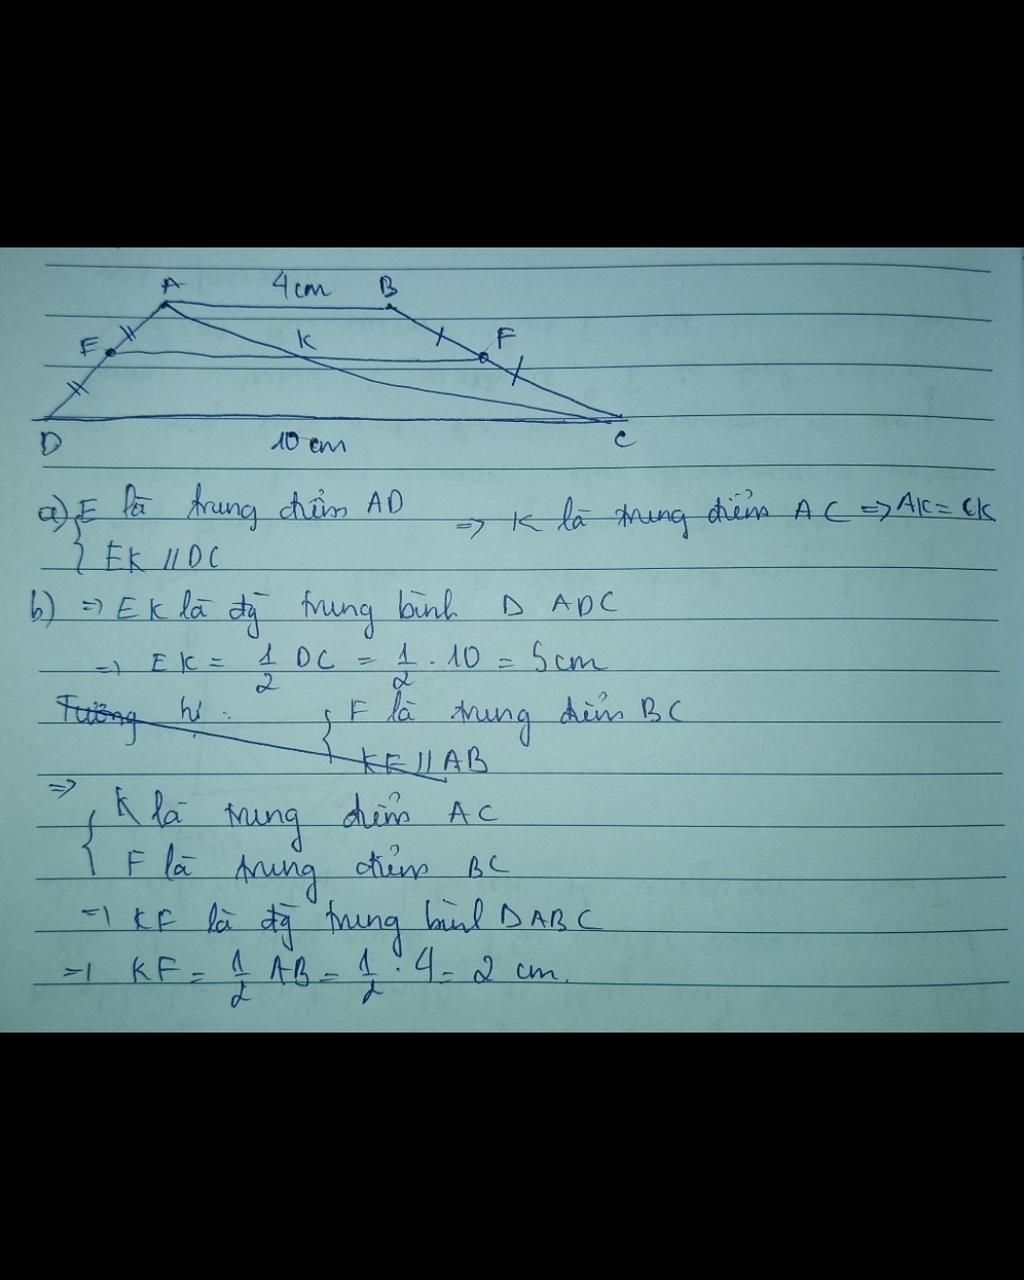 A 4cm B
E K F
D 10 cm C
a) { E là trung điểm AD => K là trung điểm AC => AK = CK
EK // DC
b) => EK là đg trung bình D ADC
=> EK = 1/2 DC = 1/2 . 10 = 5cm
Tương tự : { F là trung điểm BC
KF // AB
=>
{ K là trung điểm AC
F là trung điểm BC
=> KF là đg trung bình D ABC
=> KF = 1/2 AB = 1/2 . 4 = 2 cm.